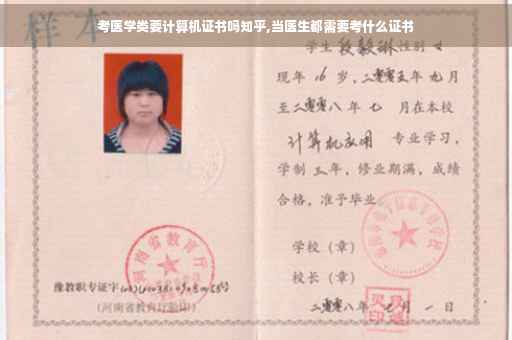 考医学类要计算机证书吗知乎,当医生都需要考什么证书
样本
学生 段毅琳 性别 女
现年 16 岁,二零零五年 九月
至二零零八年 七 月在本校
计算机应用 专业学习,
学制 三 年,修业期满,成绩
合格,准予毕业
学校(章)
校长(章)
二零零八年 七 月 一 日
河南省教育厅
豫教职专证字
(河南省教育厅验印)